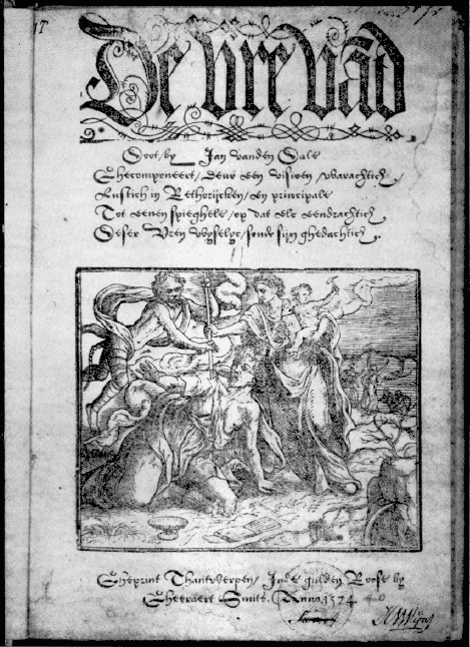 De vre vād
Doot, by Jan vanden Dale
Ghecomponeert, deur een visioen warachtich,
Lustich in Rethorijcken, en principale
Tot eenen spieghele, op dat elc eendrachtich
Deser Vren sijn ghedachtich.
Gheprint Thantwerpen, Inde gulden Roose by
Gheeraert Smits. Anno. 1574